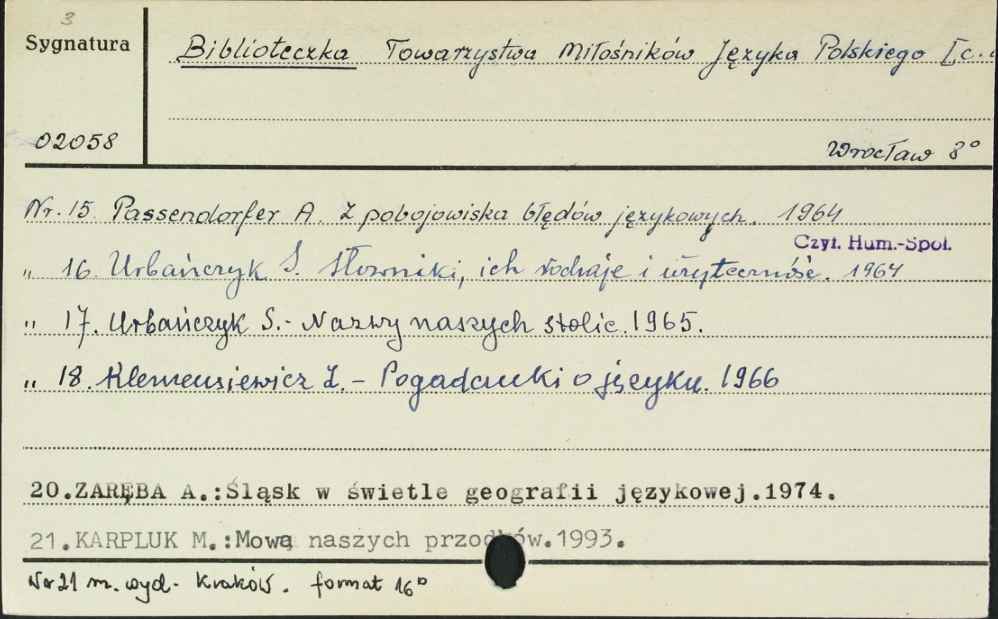 3
Sygnatura
Biblioteczka Towarzystwa Miłośników Języka Polskiego [c.
02058
Wrocław 8°
Nr. 15 Passendorfer A. Z pobojowiska błędów językowych. 1964
Czyt. Hum.-Społ.
„ 16. Urbańczyk S. Słowniki, ich rodzaje i użyteczność. 1964
„ 17. Urbańczyk S. - Nazwy naszych stolic. 1965.
„ 18. Klemensiewicz Z. - Pogadanki o języku. 1966
20.ZARĘBA A.:Śląsk w świetle geografii językowej.1974.
21.KARPLUK M.:Mową naszych przodków.1993.
Nr 21 m. wyd. - Kraków. format 16°